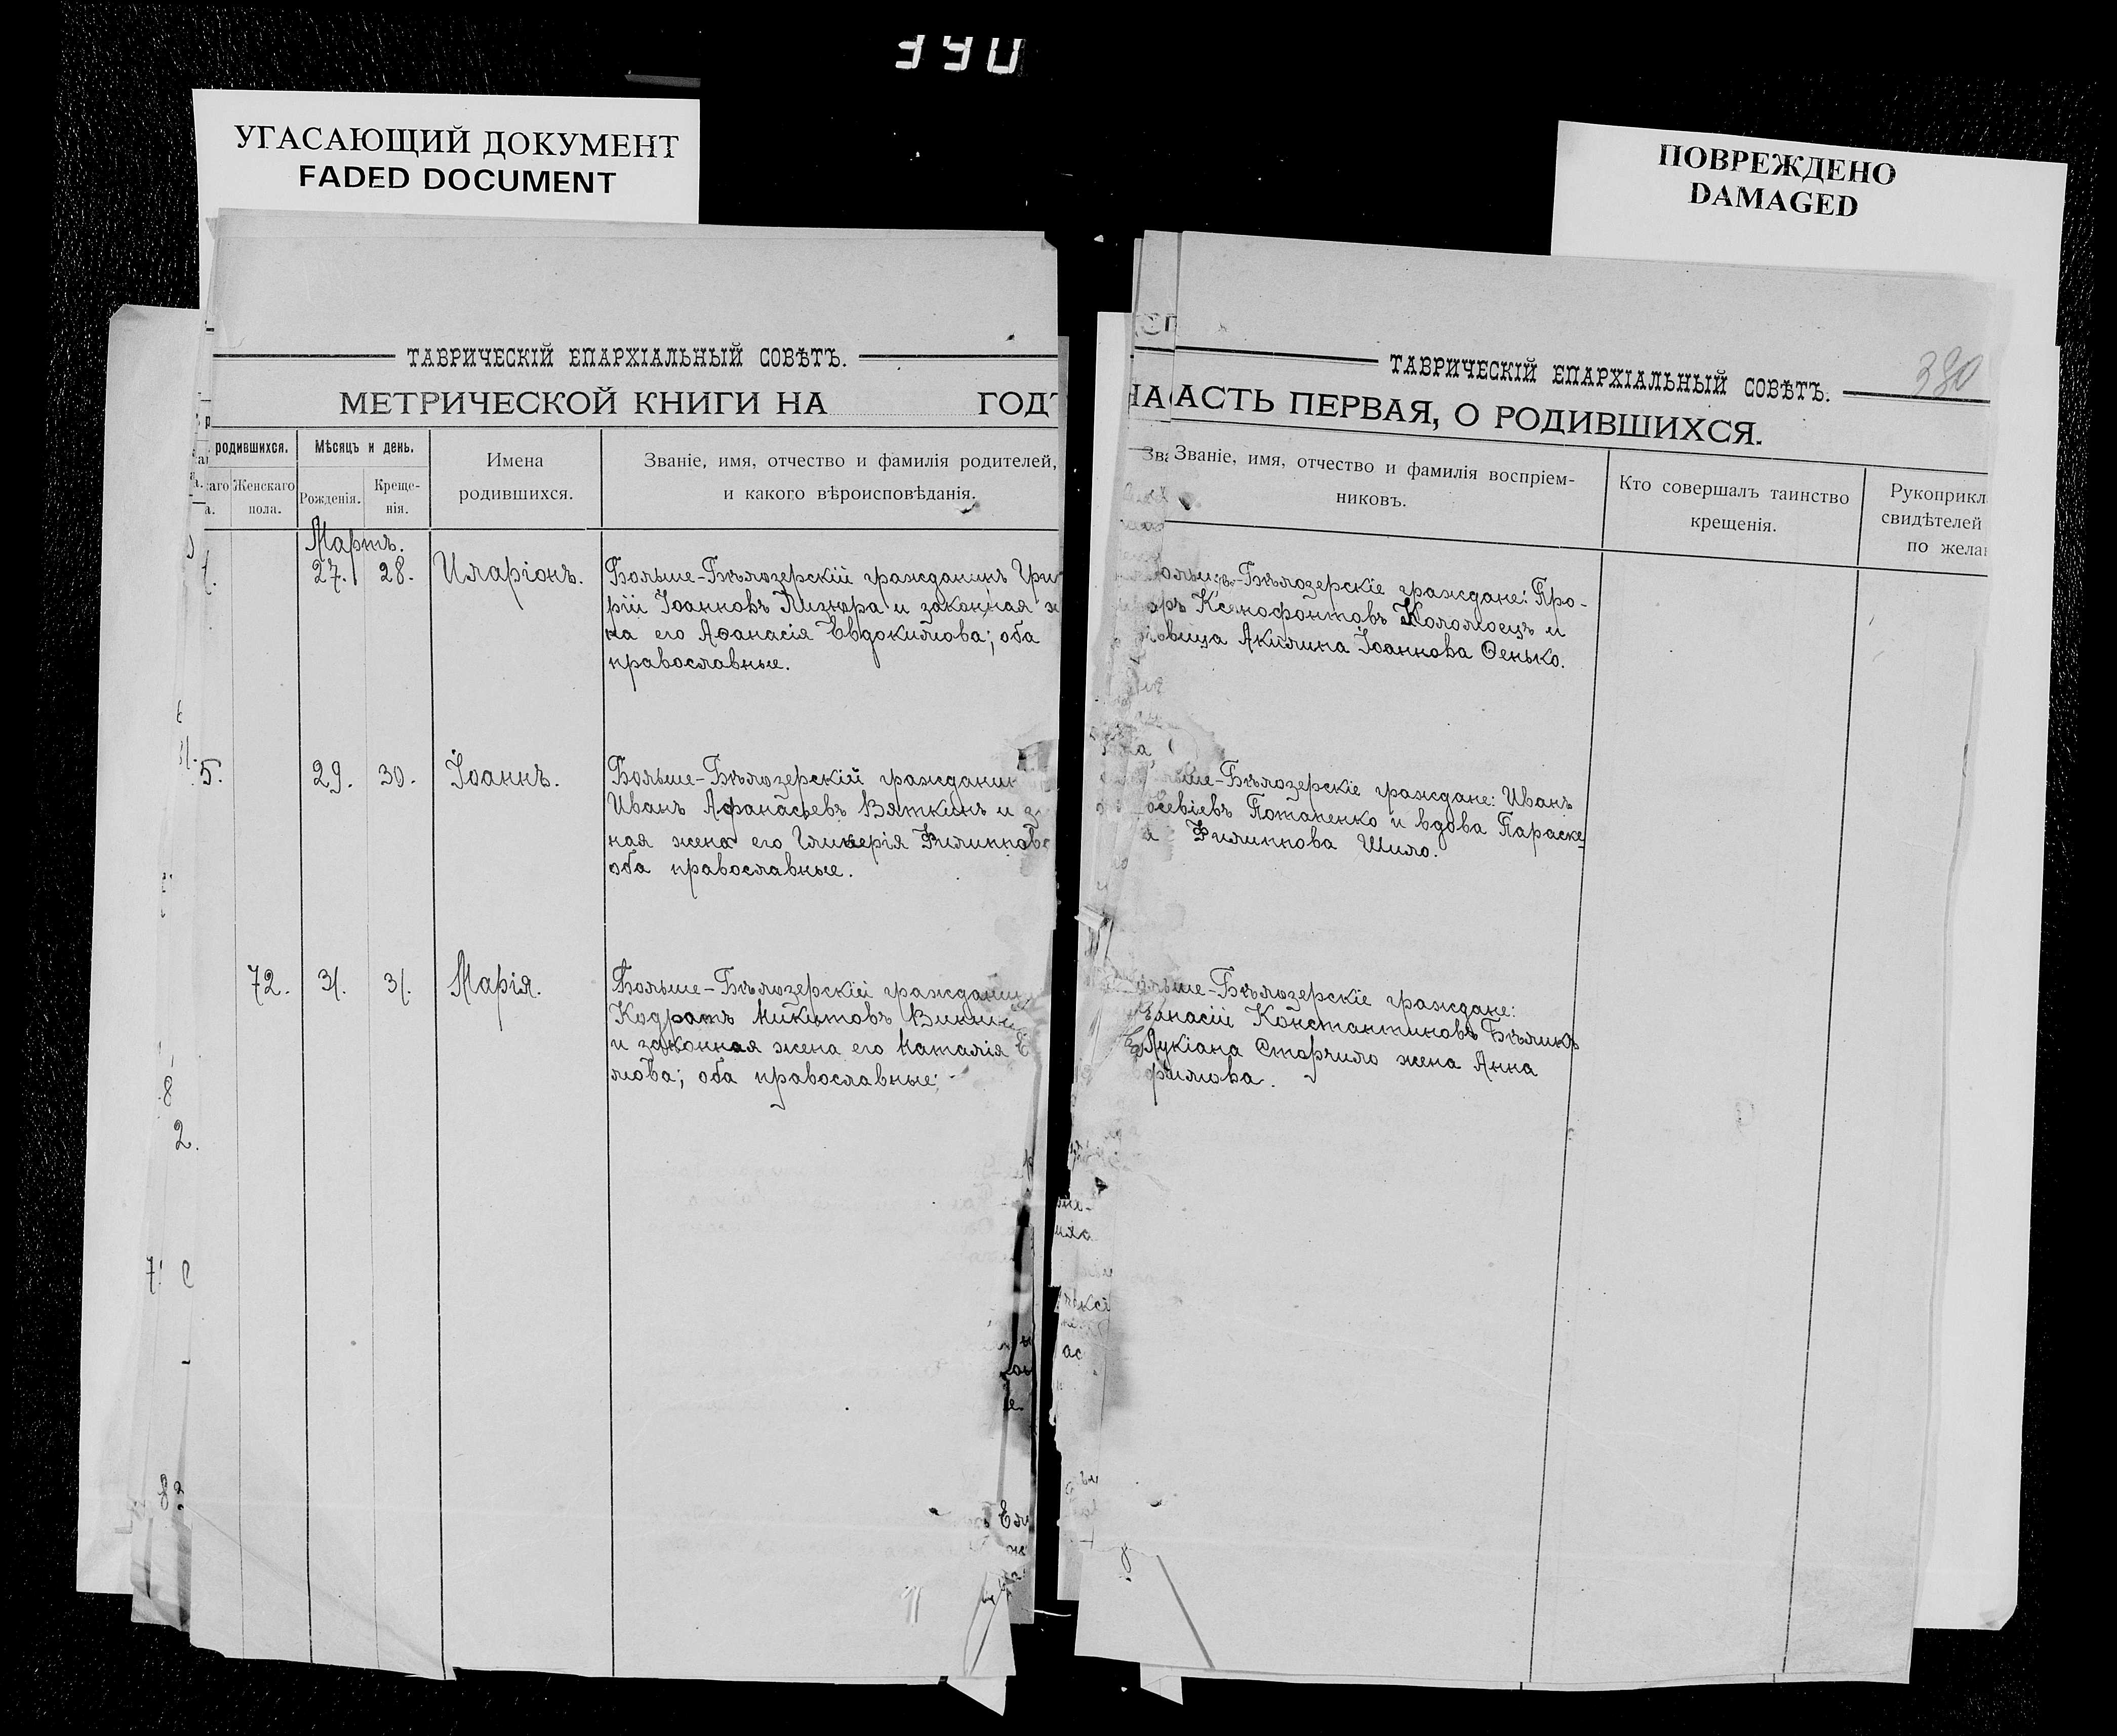 390
УГАСАЮЩИЙ ДОКУМЕНТ
FADED DOCUMENT
ПОВРЕЖДЕНО
DAMAGED
ТАВРИЧЕСКІЙ ЕПАРХІАЛЬНЫЙ СОВѢТЪ.
МЕТРИЧЕСКОЙ КНИГИ НА ГОДЪ
родившихся.
Мѣсяцъ и день.
Имена
родившихся.
Званіе, имя, отчество и фамилія родителей,
и какого вѣроисповѣданія.
Женскаго
пола.
Рожденія.
Креще-
нія.
Мартъ.
27. 28. Иларіонъ.
Больше-Бѣлозерскій гражданинъ Гри
рій Іоанновъ Пизюра и законная
на его Аѳанасія Евдокимова; оба
православные.
5. 29. 30. Іоаннъ.
Больше-Бѣлозерскій граждани
Иванъ Афанасьевъ Вяткинъ и з
ная жена его Гликерія Филиппов
оба православные.
72. 31. 31. Марія.
Больше-Бѣлозерскій граждани
Кодратъ Никитовъ
и законная жена его Наталія Е
мова; оба православные;
ТАВРИЧЕСКІЙ ЕПАРХІАЛЬНЫЙ СОВѢТЪ.
390
АСТЬ ПЕРВАЯ, О РОДИВШИХСЯ.
Званіе, имя, отчество и фамилія воспріем-
никовъ.
Кто совершалъ таинство
крещенія.
Рукоприкл
свидѣтелей
по жела
Бѣлозерскіе граждане: Про-
Ксенофонтовъ Коломоецъ и
вица Акилина Іоаннова Ѳенько.
ше-Бѣлозерскіе граждане: Иванъ
Потапенко и вдова Параске
Филиппова Шило.
льше-Бѣлозерскіе граждане:
анасій Константиновъ Бѣликъ
Лукіана Сторчило жена Анна
фимова.